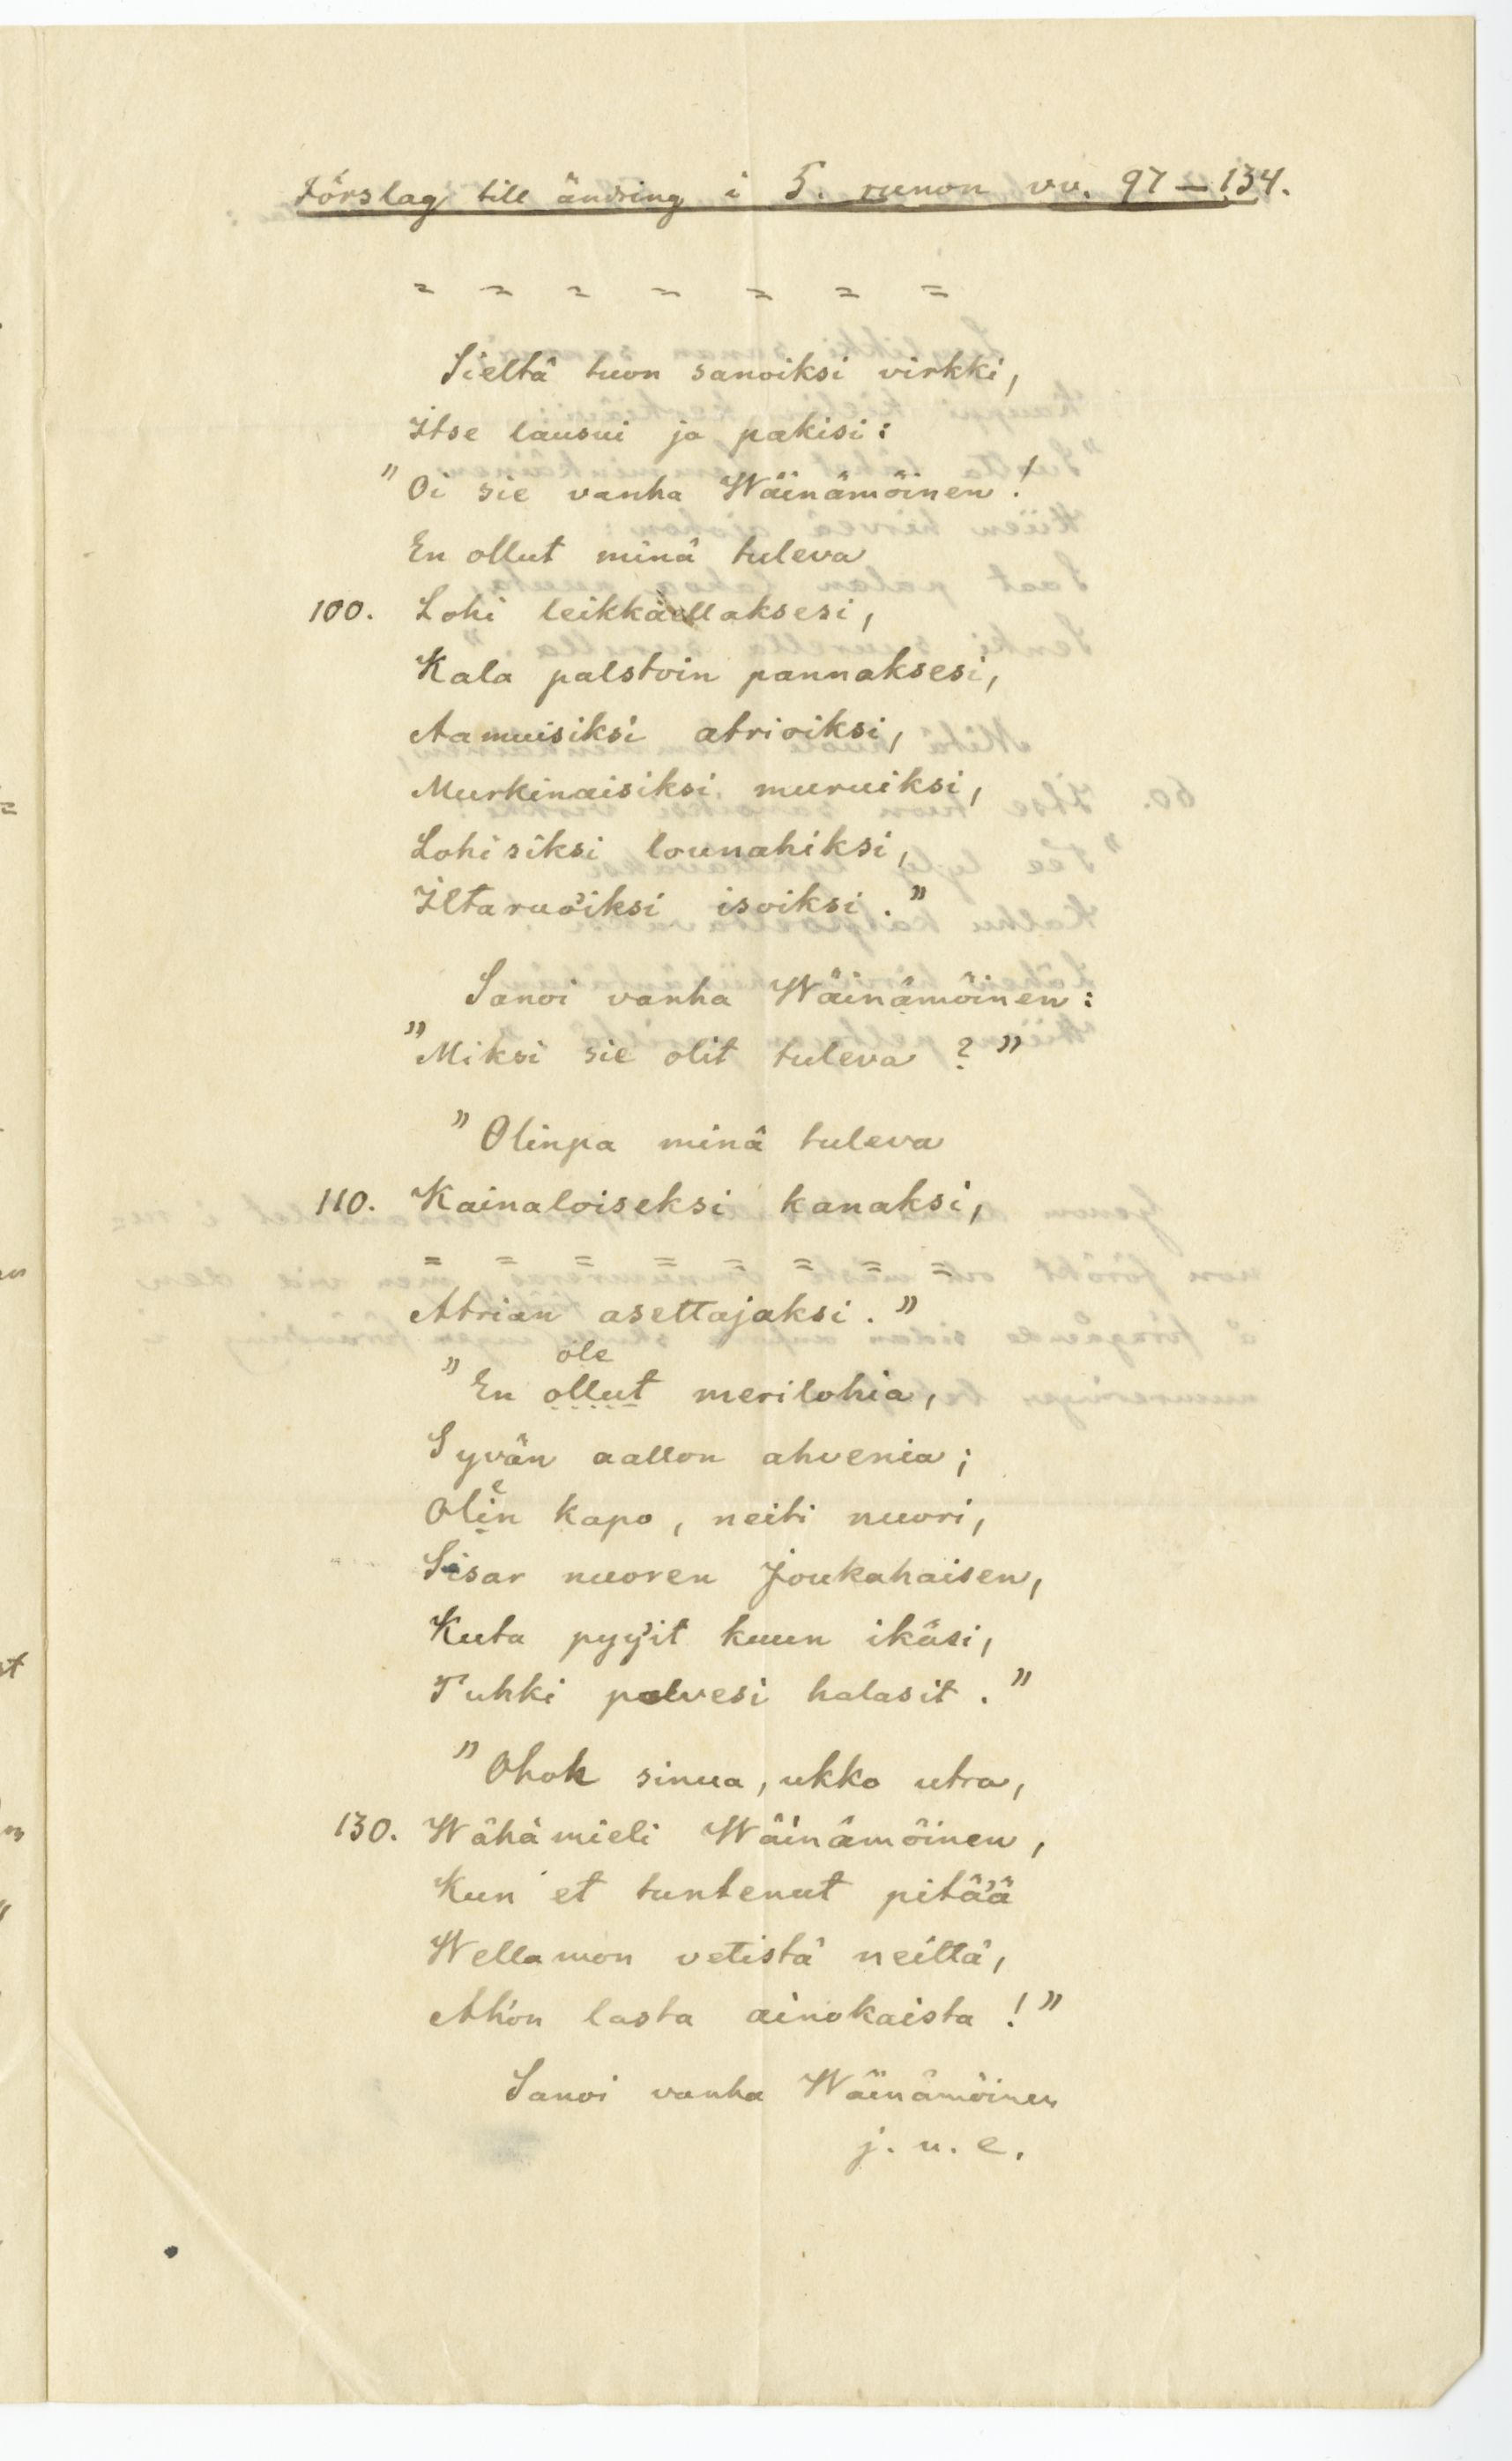 Förslag till ändring i 5. runon vv. 97—134.
= = = = = = =
Sieltä tuon sanoiksi virkki,
Itse lausui ja pakisi:
"Oi sie vanha Wäinämöinen!
En ollut minä tuleva
100. Lohi leikkäellaksesi,
Kala palstoin pannaksesi,
Aamuisiksi atrioiksi,
Murkinaisiksi muruiksi,
Lohisiksi lounahiksi,
Iltaruo'iksi isoiksi."
Sanoi vanha Wäinämöinen:
"Miksi sie olit tuleva?"
"Olinpa minä tuleva
110. Kainaloiseksi kanaksi,
= = = = = = = =
Atrian asettajaksi."
ole
"En ollut merilohia,
Syvän aallon ahvenia;
e
Olin kapo, neiti nuori,
Sisar nuoren Joukahaisen,
Kuta pyy'it kuun ikäsi,
Puhki polvesi halasit."
"Ohoh sinua, ukko utra,
130. Wähämieli Wäinämöinen,
Kun et tuntenut pitä'ä
Wellamon vetistä neittä,
Ahon lasta ainokaista!"
Sanoi vanha Wäinämöinen
j. n. e.